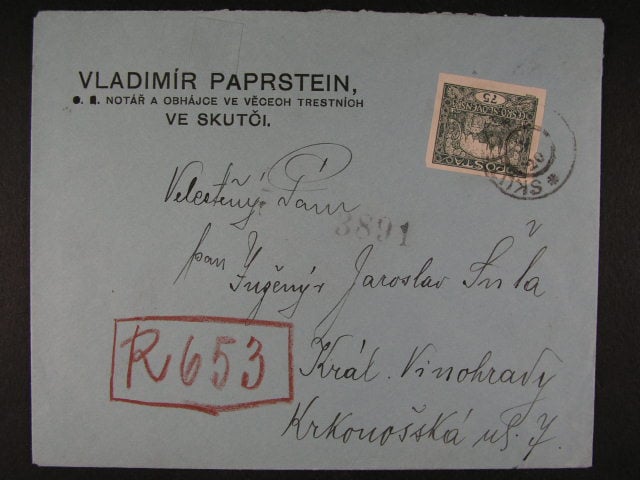 VLADIMÍR PAPRSTEIN,
NOTÁŘ A OBHÁJCE VE VĚCECH TRESTNÍCH
VE SKUTČI.
75
POŠTA
SKU
20
Velectěný Pan
3891
pan Inženýr Jaroslav
R 653
Král. Vinohrady
Krkonošská ul. 7.